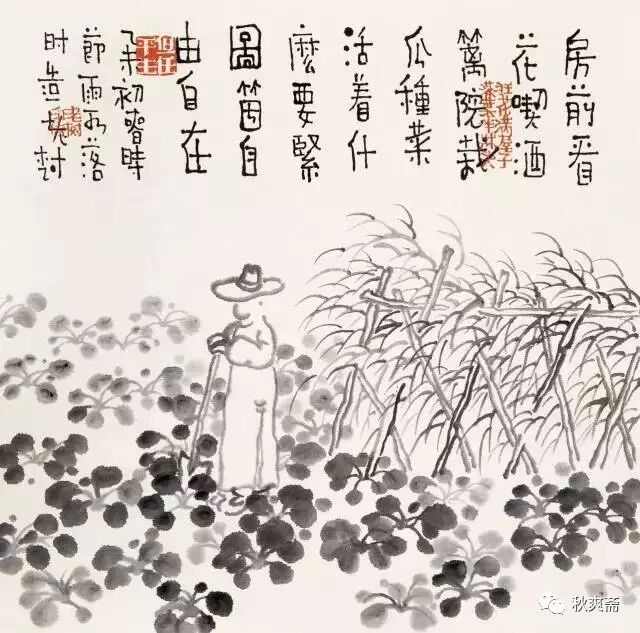 房前看
花喫酒
篱院栽
瓜種菜
活着什
麼要緊
圖箇自
由自在
初春時
節雨
落
时
老树
秋爽斋